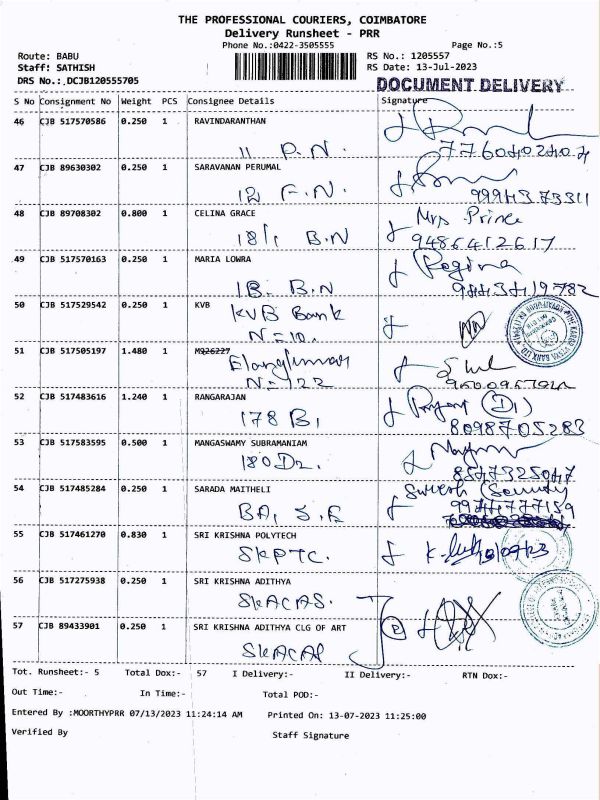 THE PROFESSIONAL COURIERS, COIMBATORE
Delivery Runsheet - PRR
Phone No.:0422-3505555 Page No.:5
Route: BABU RS No.: 1205557
Staff: SATHISH RS Date: 13-Jul-2023
DRS No.: DCJB120555705 DOCUMENT DELIVERY
S No Consignment No Weight PCS Consignee Details Signature
46 CJB 517570586 0.250 1 RAVINDARANTHAN
11 P.N.
47 CJB 89630302 0.250 1 SARAVANAN PERUMAL
12 F.N.
48 CJB 89708302 0.800 1 CELINA GRACE Mrs Prince
18/1 B.N 9486412617
49 CJB 517570163 0.250 1 MARIA LOWRA Regina
1B. B.N
50 CJB 517529542 0.250 1 KVB
KVB Bank
N=10.
51 CJB 517505197 1.480 1 M926227
N=122
52 CJB 517483616 1.240 1 RANGARAJAN
178 B1 8098705283
53 CJB 517583595 0.500 1 MANGASWAMY SUBRAMANIAM
180 D2.
54 CJB 517485284 0.250 1 SARADA MAITHELI Suresh (Security
BA, S.F
55 CJB 517461270 0.830 1 SRI KRISHNA POLYTECH
SKPTC.
56 CJB 517275938 0.250 1 SRI KRISHNA ADITHYA
SKACAS.
57 CJB 89433901 0.250 1 SRI KRISHNA ADITHYA CLG OF ART
SKACAS
Tot. Runsheet:- 5 Total Dox:- 57 I Delivery:- II Delivery:- RTN Dox:-
Out Time:- In Time:- Total POD:-
Entered By :MOORTHYPRR 07/13/2023 11:24:14 AM Printed On: 13-07-2023 11:25:00
Verified By Staff Signature